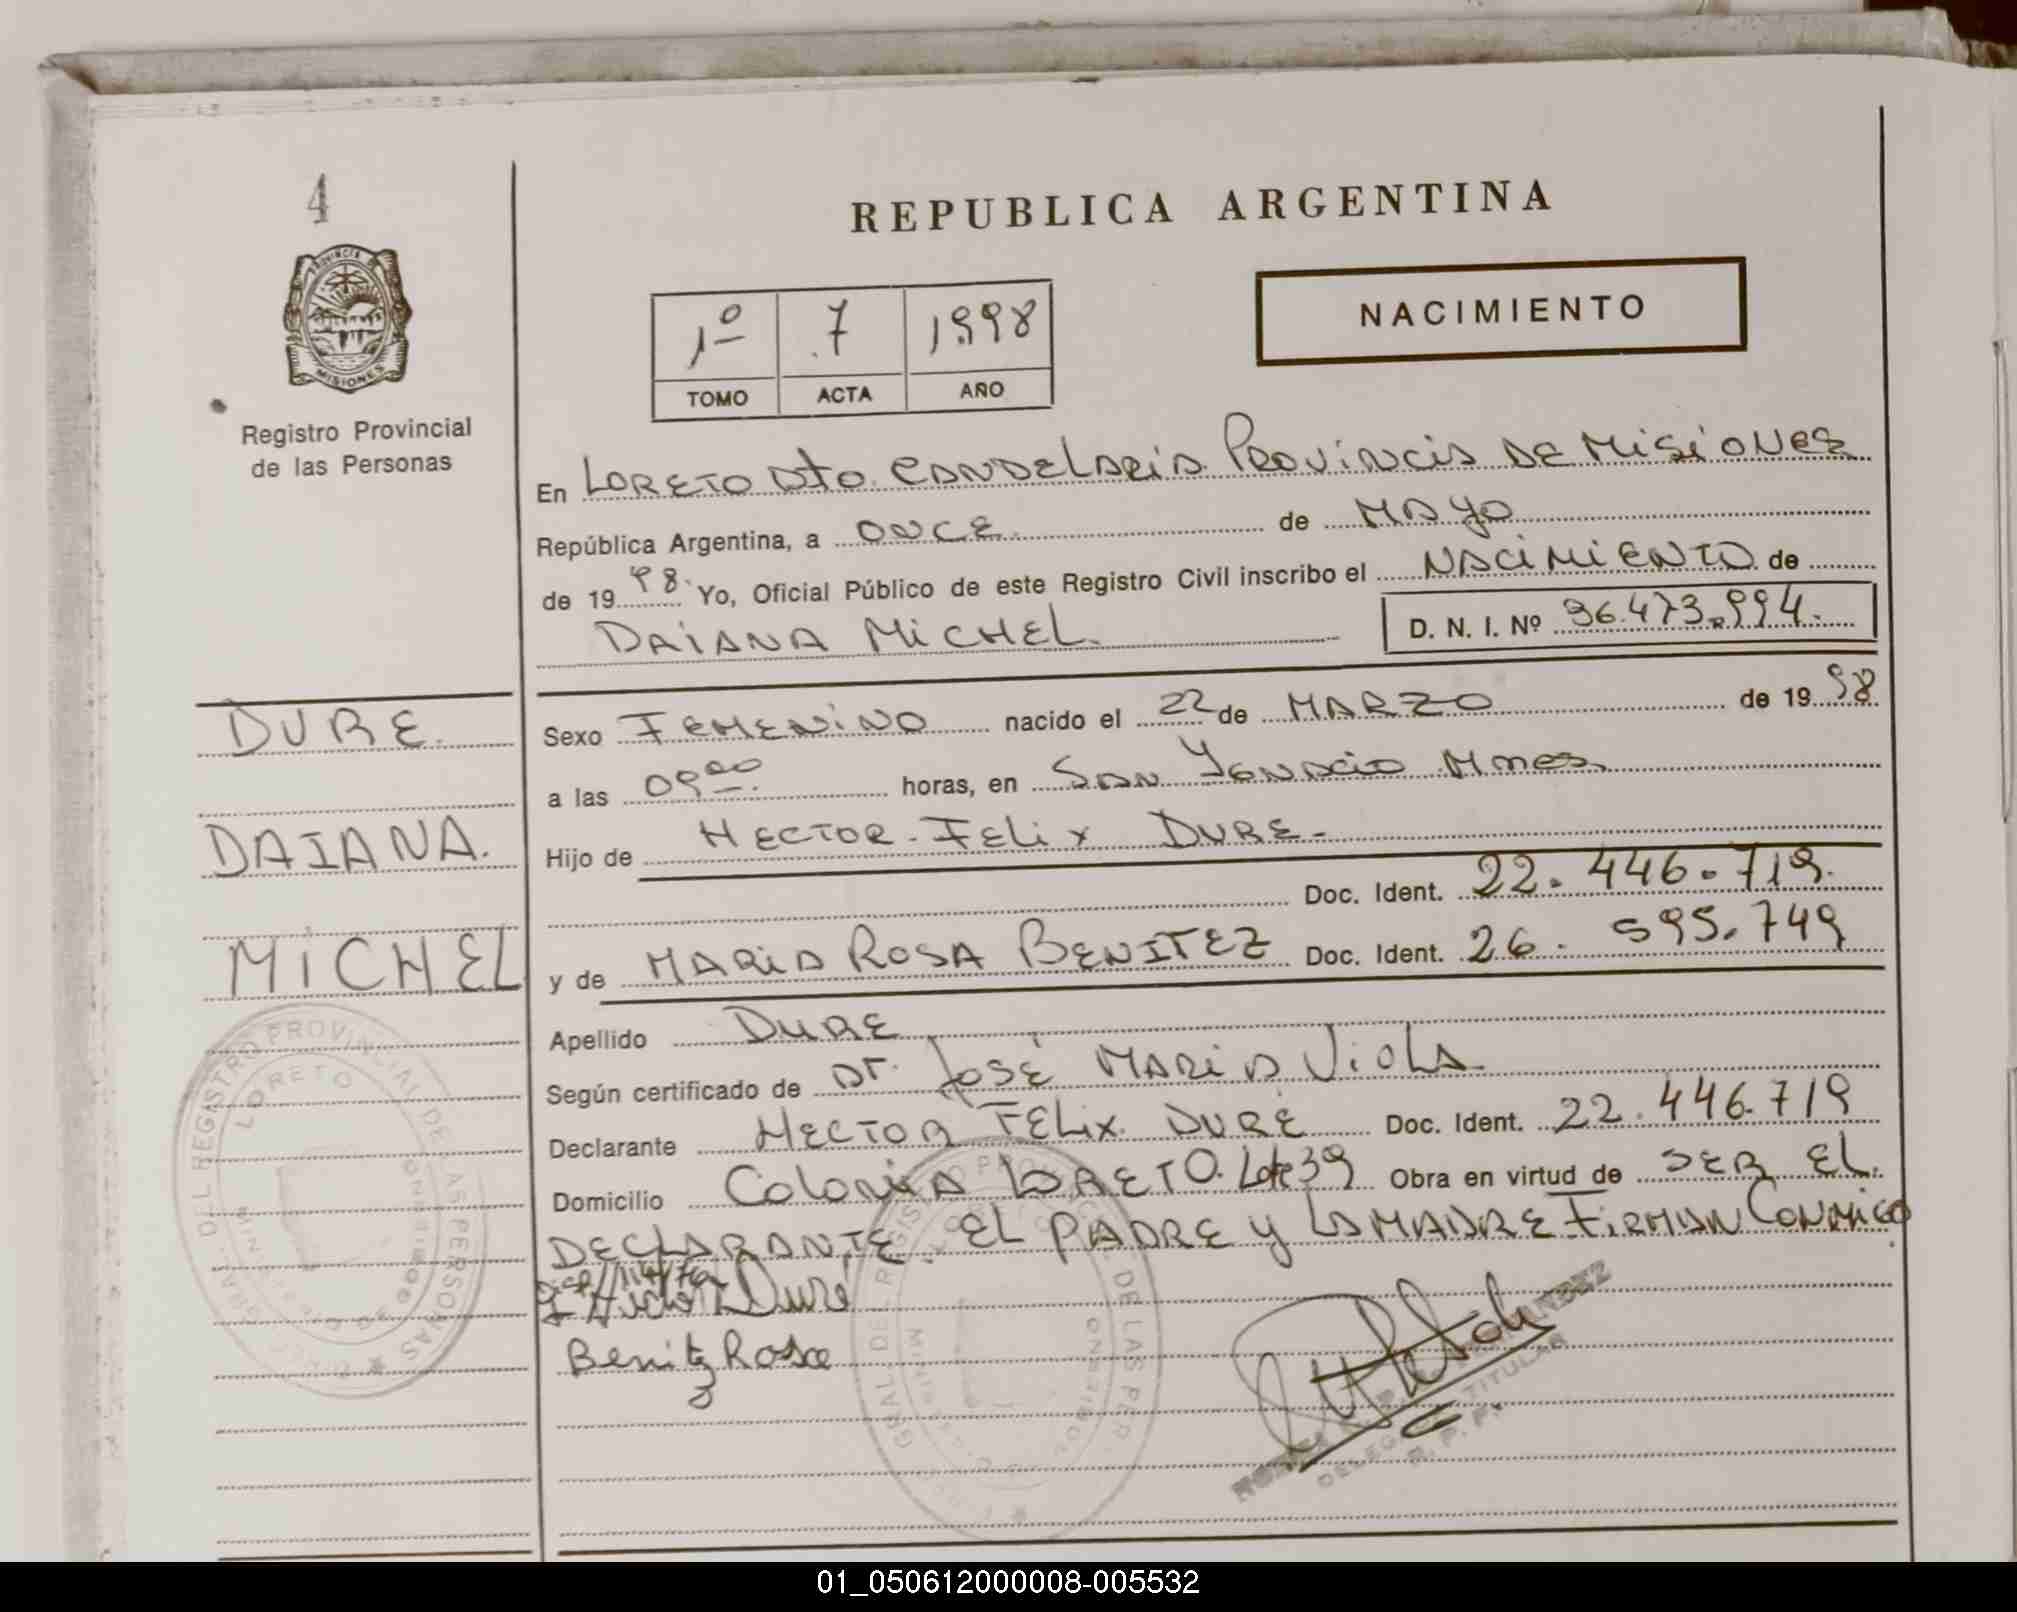 4
REPUBLICA ARGENTINA
NACIMIENTO
1º 7 1998
TOMO ACTA AÑO
PROVINCIA DE
MISIONES
Registro Provincial
de las Personas
En LORETO Dto. CANDELARIA PROVINCIA DE MISIONES
República Argentina, a ONCE de MAYO
de 19 98. Yo, Oficial Público de este Registro Civil inscribo el NACIMIENTO de
DAIANA MICHEL. D. N. I. Nº 96.473.994.
DURE.
DAIANA.
MICHEL
Sexo FEMENINO nacido el 22 de MARZO de 19 98
a las 09 00 horas, en SAN YGNACIO Mnes.
Hijo de HECTOR - FELIX DURE -
Doc. Ident. 22.446.719.
y de MARIA ROSA BENITEZ Doc. Ident. 26. 595.749
Apellido DURE
Según certificado de Dr. José MARIA VIOLA
Declarante HECTOR FELIX DURÉ Doc. Ident. 22.446.719
Domicilio COLONIA LORETO. Lote 39 Obra en virtud de SER EL
DECLARANTE. EL PADRE Y LA MADRE FIRMAN CONMIGO
Duré
Benitz Rosa
DELEGADO TITULAR
R. P. P.
REGISTRO PROVINCIAL DE LAS PERSONAS
LORETO
01_050612000008-005532